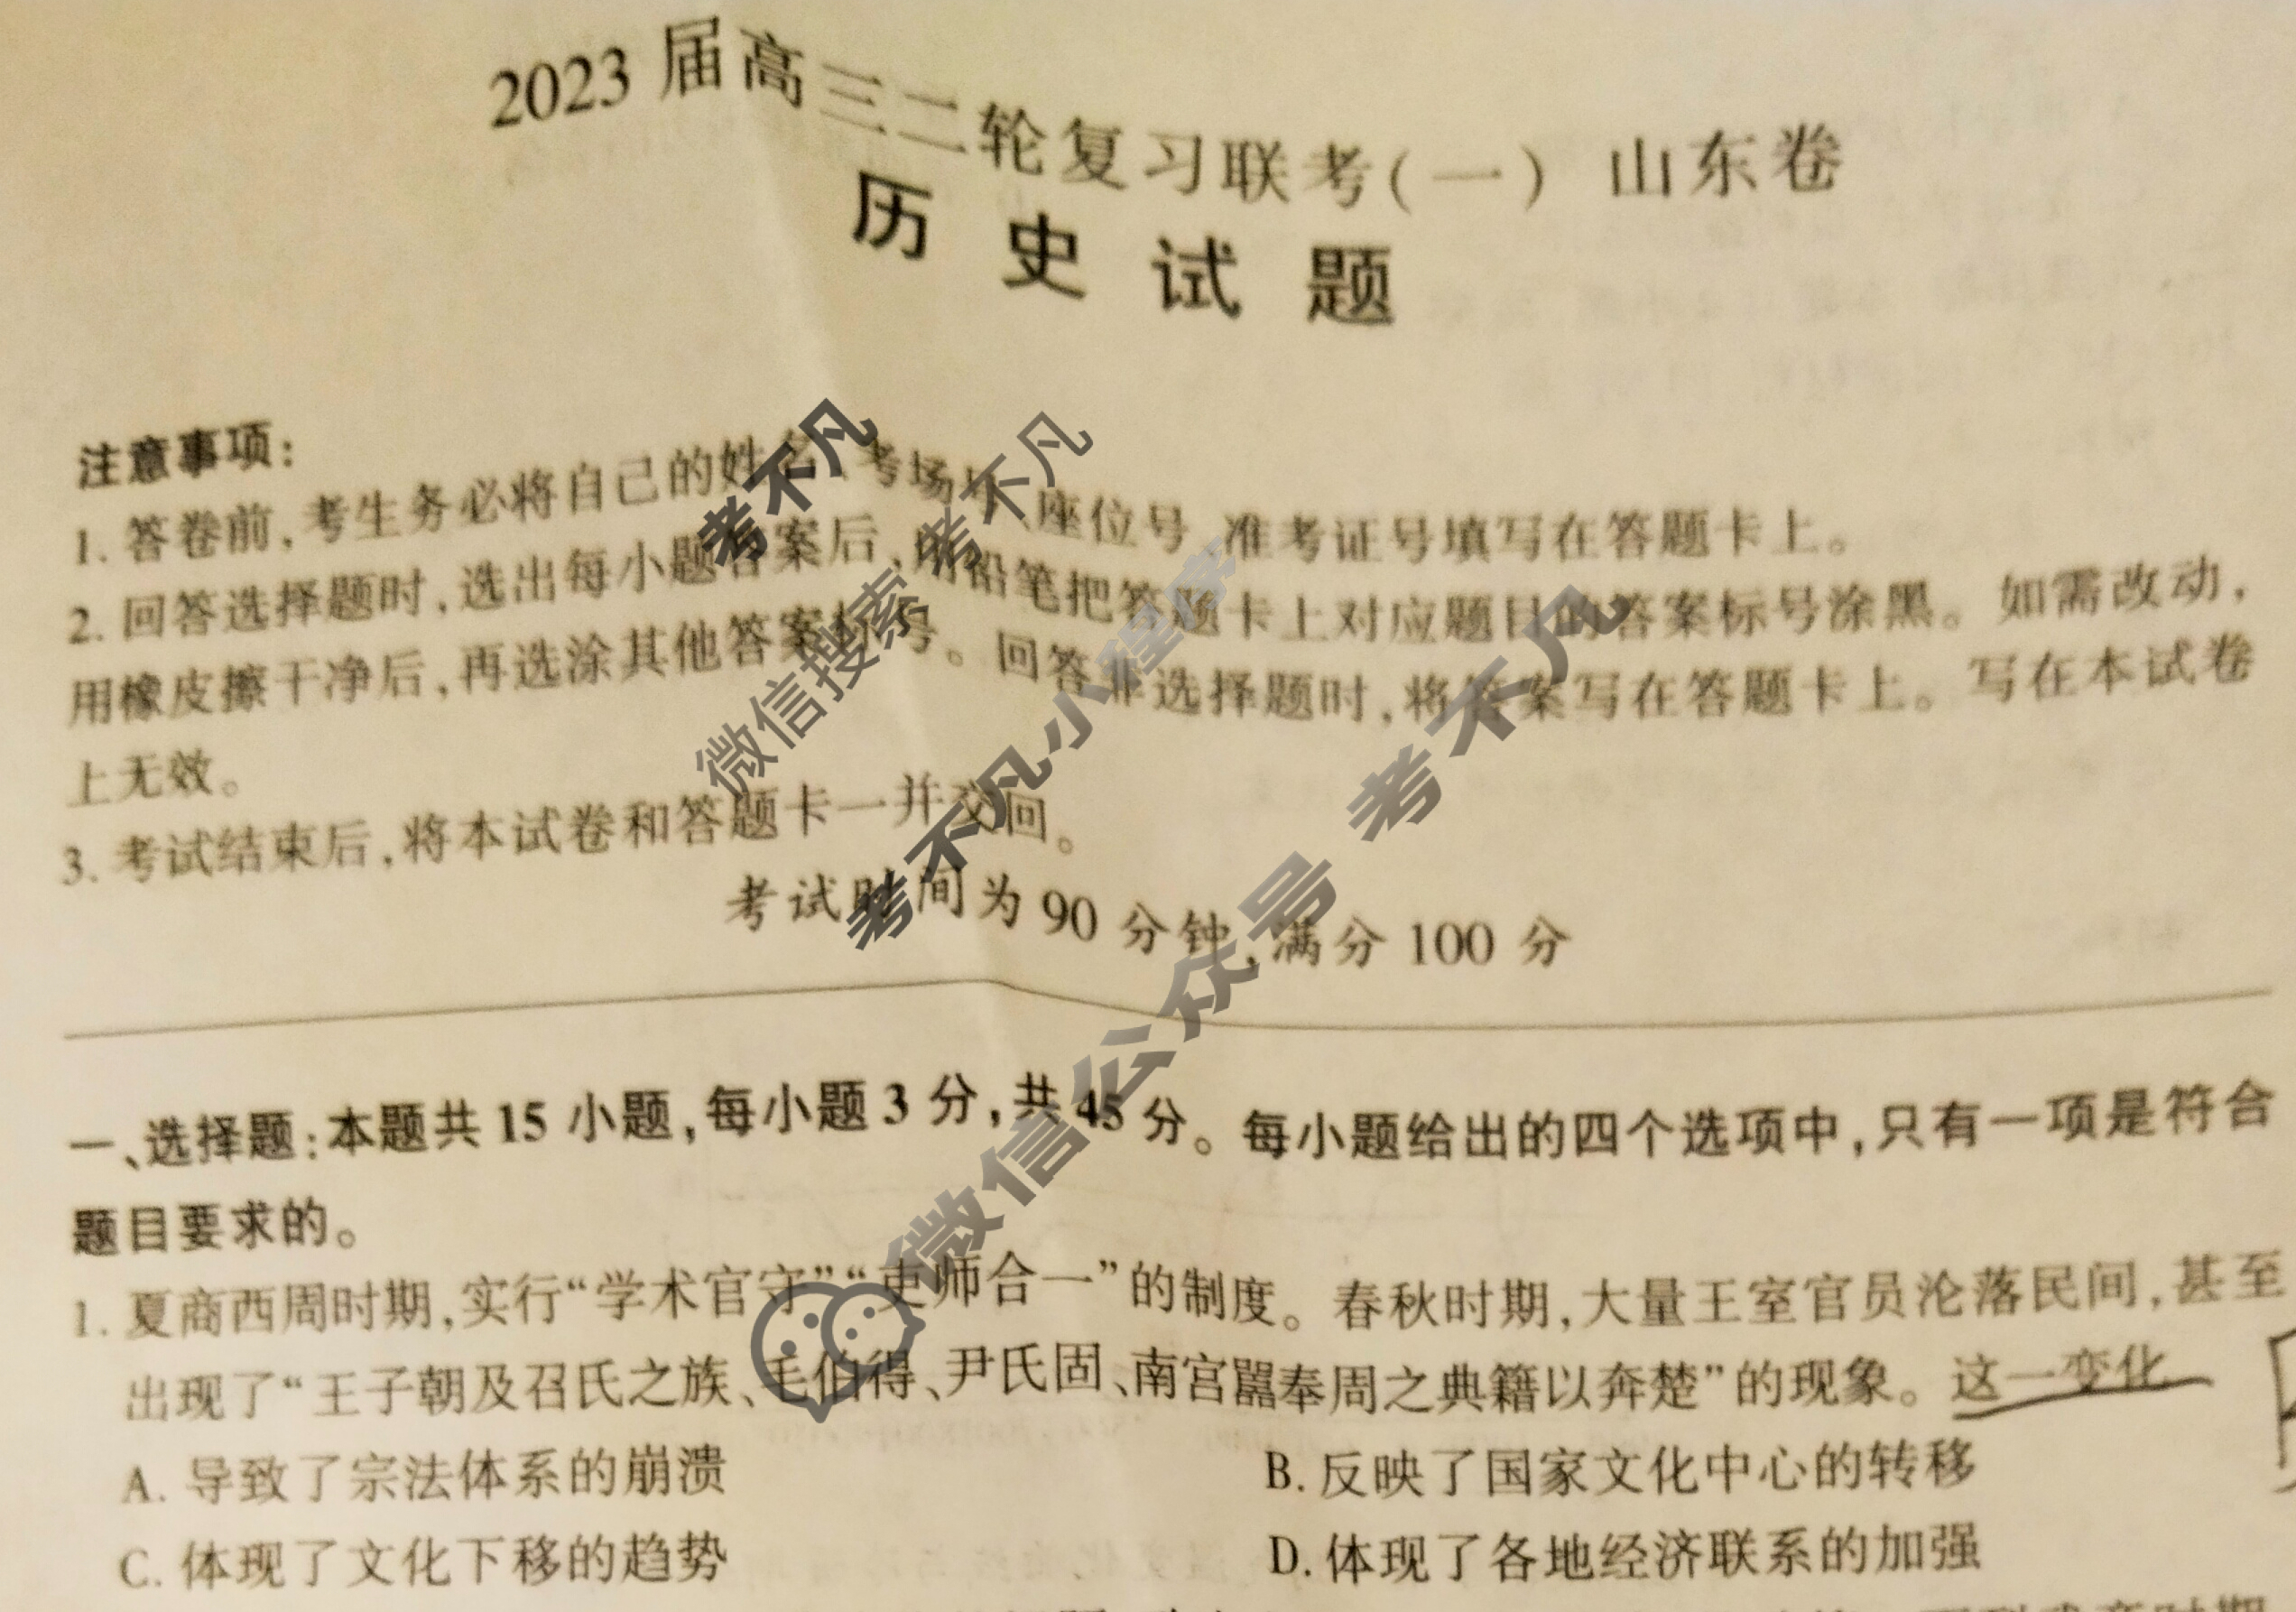 2023 届高三二轮复习联考(一) 山东卷
历 史 试 题
注意事项:
1. 答卷前,考生务必将自己的姓名、考场号、座位号、准考证号填写在答题卡上。
2. 回答选择题时,选出每小题答案后,用铅笔把答题卡上对应题目的答案标号涂黑。如需改动,
用橡皮擦干净后,再选涂其他答案标号。回答非选择题时,将答案写在答题卡上。写在本试卷
上无效。
3. 考试结束后,将本试卷和答题卡一并交回。
考试时间为 90 分钟,满分 100 分
一、选择题:本题共 15 小题,每小题 3 分,共 45 分。每小题给出的四个选项中,只有一项是符合
题目要求的。
1. 夏商西周时期,实行“学术官守”“吏师合一”的制度。春秋时期,大量王室官员沦落民间,甚至
出现了“王子朝及召氏之族、毛伯得、尹氏固、南宫嚚奉周之典籍以奔楚”的现象。这一变化
A. 导致了宗法体系的崩溃
B. 反映了国家文化中心的转移
C. 体现了文化下移的趋势
D. 体现了各地经济联系的加强
考不凡
微信搜索 考不凡
考不凡小程序
微信公众号 考不凡